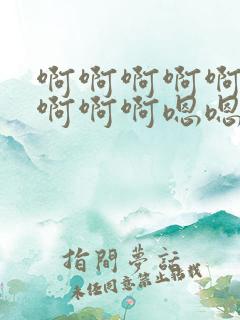 啊啊啊啊啊
啊啊啊嗯嗯
指間夢話
未经同意禁止转载